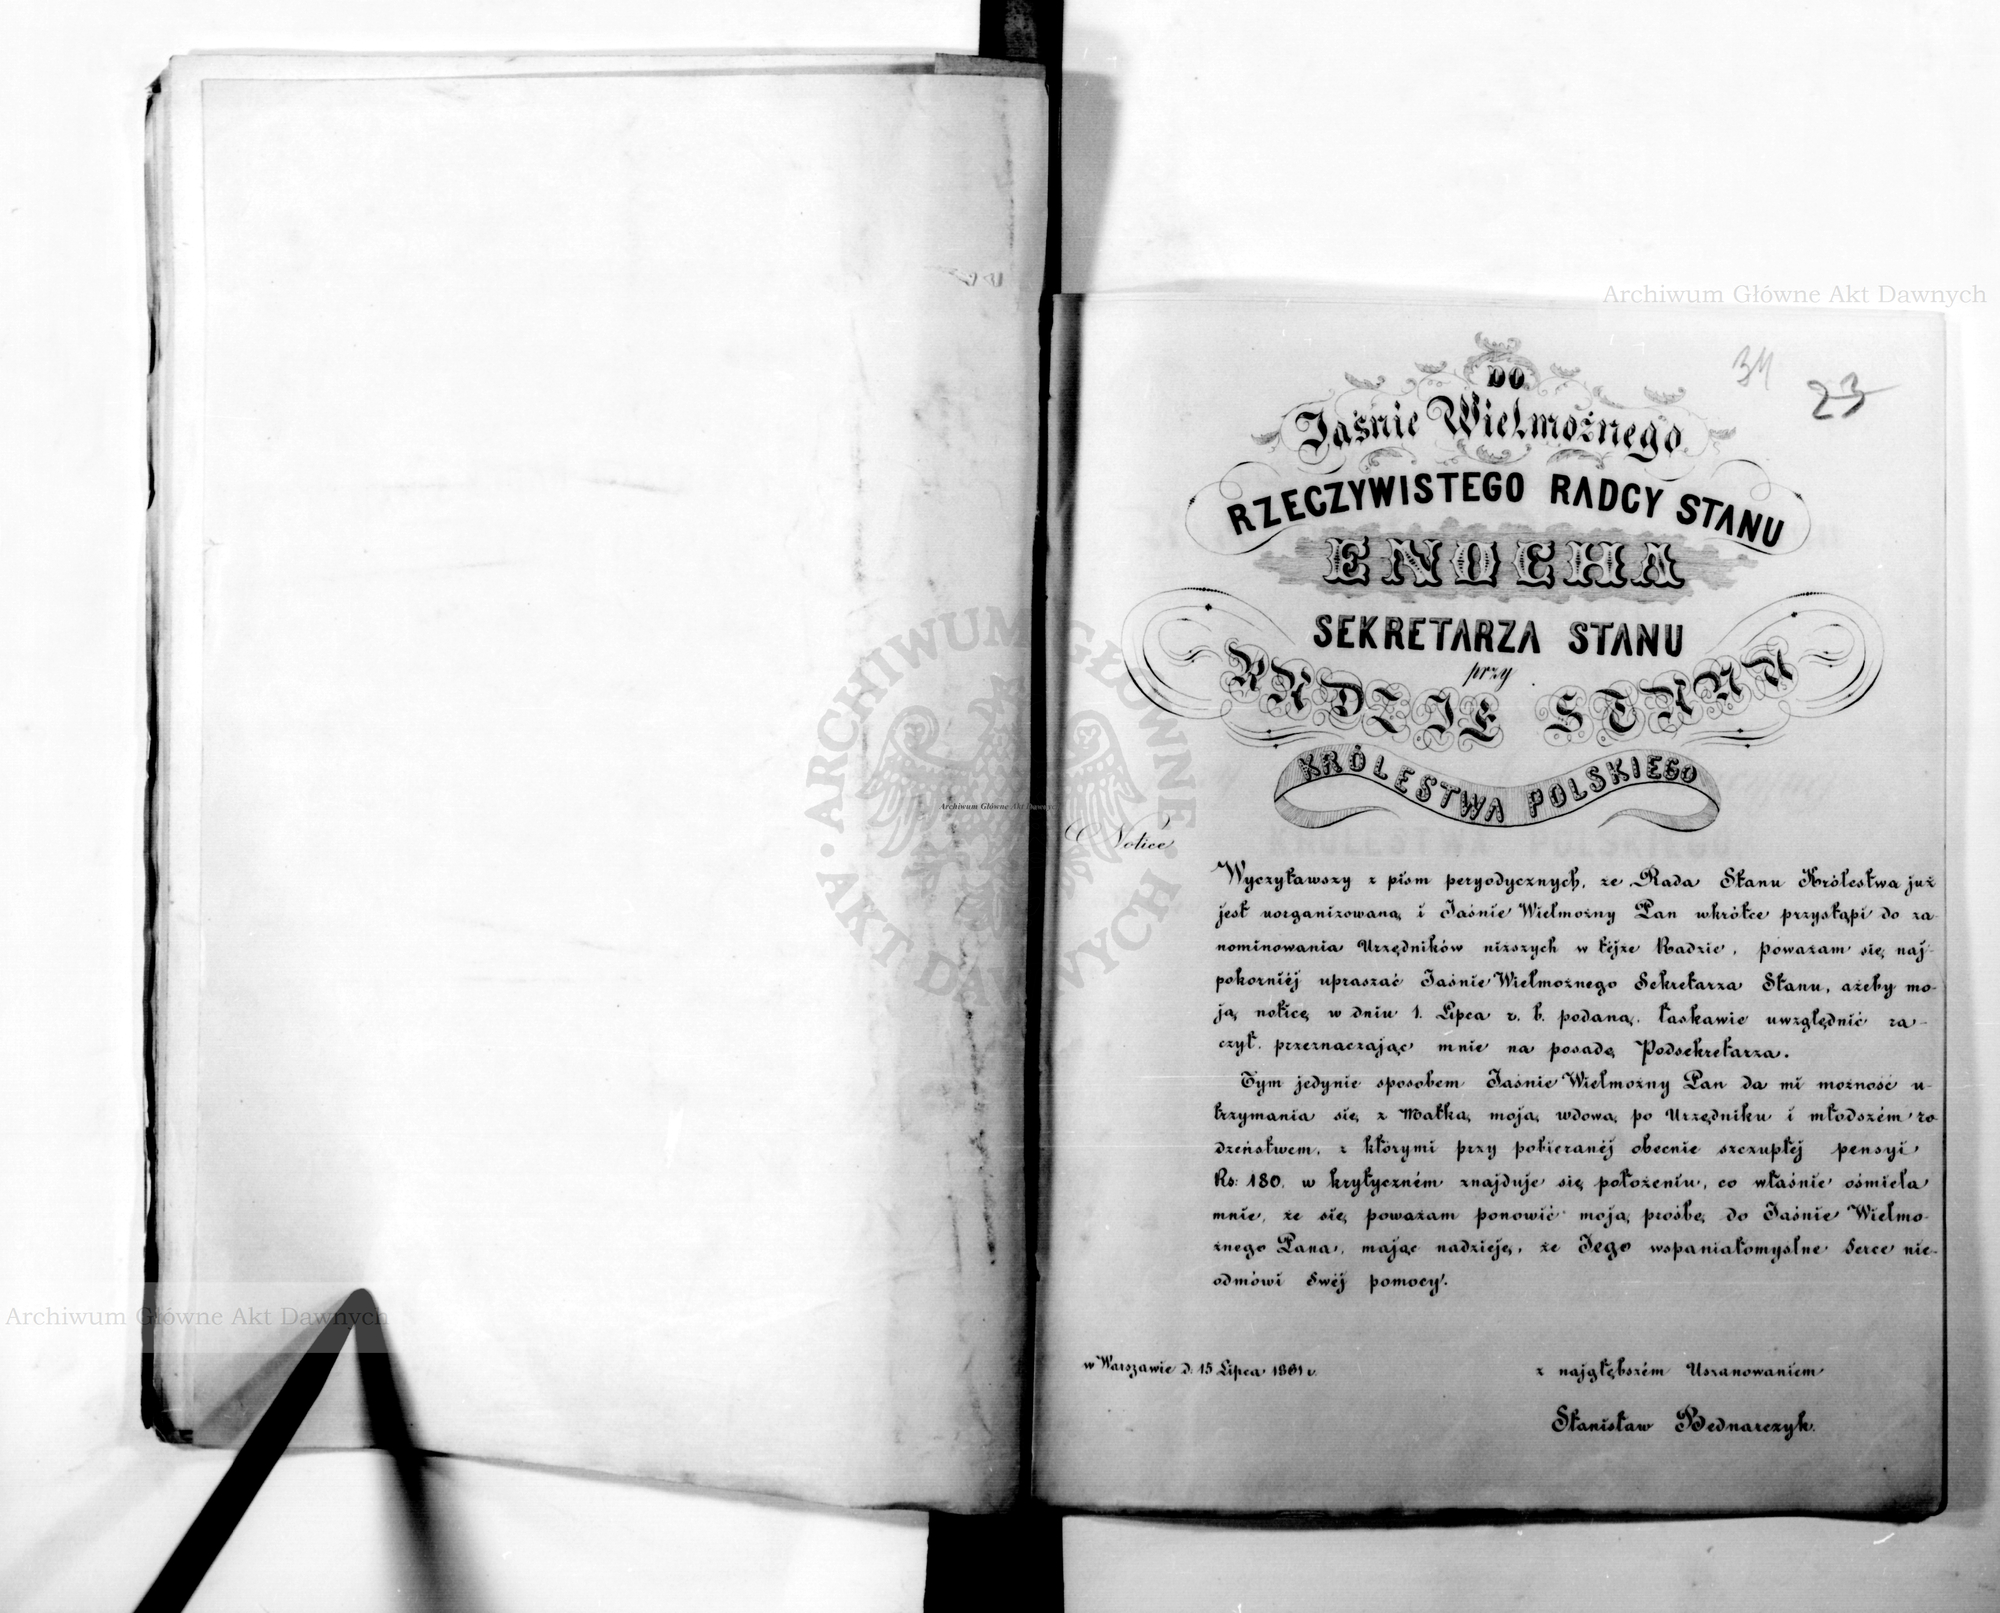 Archiwum Główne Akt Dawnych
34
23
DO
Jaśnie Wielmożnego
RZECZYWISTEGO RADCY STANU
ENOCHA
SEKRETARZA STANU
przy
RADZIE STANU
KRÓLESTWA POLSKIEGO
Notice
Wyczytawszy z pism peryodycznych, że Rada Stanu Królestwa już
jest uorganizowaną i Jaśnie Wielmożny Pan wkrótce przystąpi do za-
nominowania Urzędników niższych w téjże Radzie, poważam się naj-
pokorniéj upraszać Jaśnie Wielmożnego Sekretarza Stanu, ażeby mo-
ją noticę w dniu 1. Lipca r. b. podaną, łaskawie uwzględnić ra-
czył, przeznaczając mnie na posadę Podsekretarza.
Tym jedynie sposobem Jaśnie Wielmożny Pan da mi możność u-
trzymania się z Matką moją wdową po Urzędniku i młodszém ro-
dzeństwem, z którymi przy pobieranéj obecnie szczupłéj pensyi
Rs: 180, w krytyczném znajduje się położeniu, co właśnie ośmiela
mnie, że się poważam ponowić moją prośbę do Jaśnie Wielmo-
żnego Pana, mając nadzieję, że Jego wspaniałomyślne Serce nie-
odmówi Swéj pomocy.
w Warszawie d. 15 Lipca 1861 r.
z najgłębszém Uszanowaniem
Stanisław Bednarczyk.
ARCHIWUM GŁÓWNE AKT DAWNYCH
Archiwum Główne Akt Dawnych
Archiwum Główne Akt Dawnych